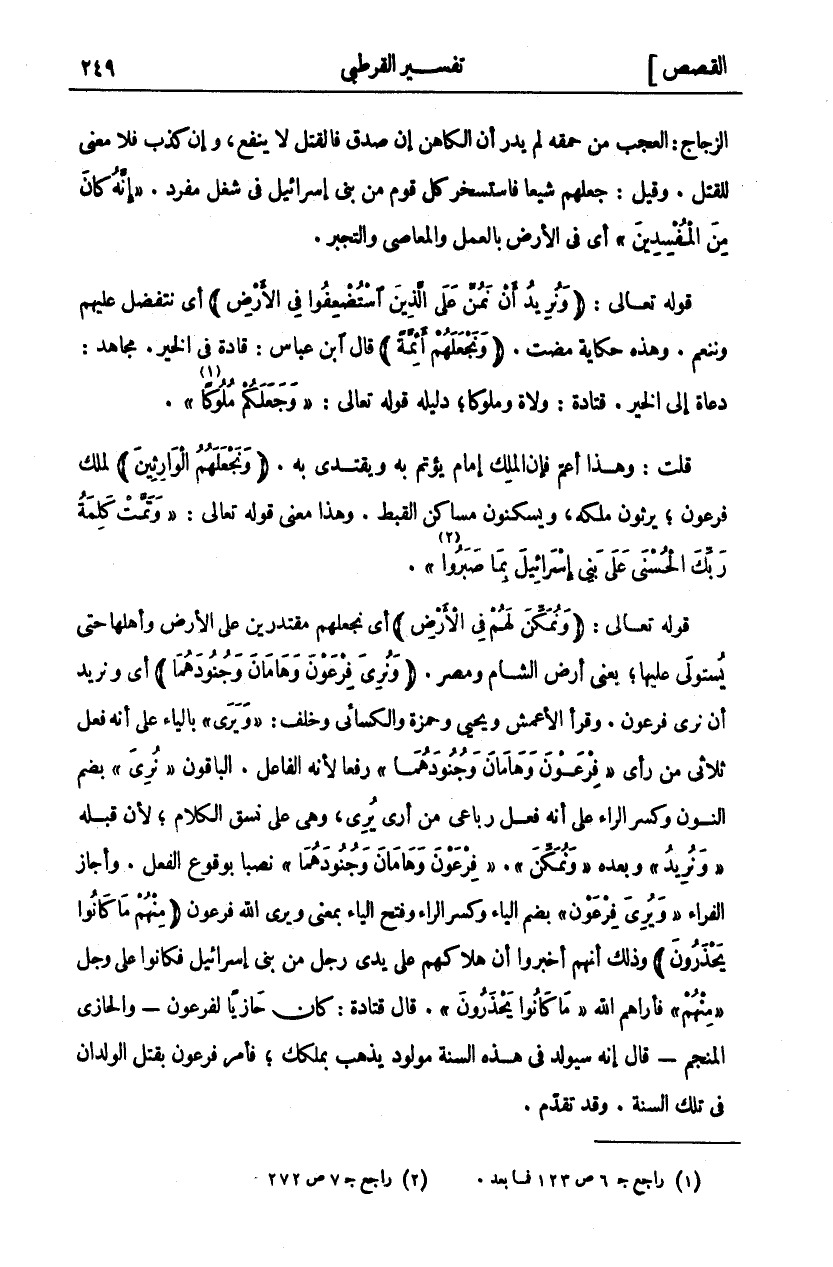 القصص ] تفسير القرطبي ٢٤٩
الزجاج : العجب من حمقه لم يدر أن الكاهن إن صدق فالقتل لا ينفع، و إن كذب فلا معنى
للقتل . وقيل : جعلهم شيعا فاستسخر كل قوم من بنى إسرائيل فى شغل مفرد . « إِنَّهُ كَانَ
مِنَ الْمُفْسِدِينَ » أى فى الأرض بالعمل والمعاصى والتجبر .
قوله تعـالى : ﴿ وَنُرِيدُ أَنْ نَمُنَّ عَلَى الَّذِينَ ٱسْتُضْعِفُوا فِى الْأَرْضِ ﴾ أى نتفضل عليهم
وننعم . وهذه حكاية مضت . ﴿ وَنَجْعَلَهُمْ أَئِمَّةً ﴾ قال ٱبن عباس : قادة فى الخير . مجاهد :
دعاة إلى الخير . قتادة : ولاة وملوكا؛ دليله قوله تعالى : « وَجَعَلَكُمْ مُلُوكًا (١) » .
قلت : وهـذا أعم فإن الملك إمام يؤتم به ويقتـدى به . ﴿ وَنَجْعَلَهُمُ الْوَارِثِينَ ﴾ لملك
فرعون ؛ يرثون ملكه، ويسكنون مساكن القبط . وهذا معنى قوله تعالى : « وَتَمَّتْ كَلِمَةُ
رَبِّكَ الْحُسْنَى عَلَى بَنِى إِسْرَائِيلَ بِمَا صَبَرُوا (٢) » .
قوله تعـالى : ﴿ وَنُمَكِّنَ لَهُمْ فِى الْأَرْضِ ﴾ أى نجعلهم مقتدرين على الأرض وأهلها حتى
يُستولَى عليها؛ يعنى أرض الشـام ومصر . ﴿ وَنُرِىَ فِرْعَوْنَ وَهَامَانَ وَجُنُودَهُمَا ﴾ أى ونريد
أن نرى فرعون . وقرأ الأعمش ويحيى وحمزة والكسائى وخلف : « وَيَرَى » بالياء على أنه فعل
ثلاثى من رأى « فِرْعَـوْنُ وَهَامَانُ وَجُنُودُهُمَـا » رفعا لأنه الفاعل . الباقون « نُرِىَ » بضم
النـون وكسر الراء على أنه فعـل رباعى من أرى يُرِى، وهى على نسق الكلام ؛ لأن قبـله
« وَنُرِيدُ » وبعده « وَنُمَكِّنَ » . « فِرْعَوْنَ وَهَامَانَ وَجُنُودَهُمَا » نصبا بوقوع الفعل . وأجاز
الفراء « وَيُرِىَ فِرْعَوْنَ » بضم الياء وكسر الراء وفتح الياء بمعنى ويرى الله فرعون ﴿ مِنْهُمْ مَا كَانُوا
يَحْذَرُونَ ﴾ وذلك أنهم أخبروا أن هلاكهم على يدى رجل من بنى إسرائيل فكانوا على وجل
« مِنْهُمْ » فأراهم الله « مَا كَانُوا يَحْذَرُونَ » . قال قتادة : كان حَازِيًا لفرعون — والحازى
المنجم — قال إنه سيولد فى هـذه السنة مولود يذهب بملكك ؛ فأمر فرعون بقتل الولدان
فى تلك السنة . وقد تقدّم .
(١) راجع جـ ٦ ص ١٢٣ فما بعد . (٢) راجع جـ ٧ ص ٢٧٢